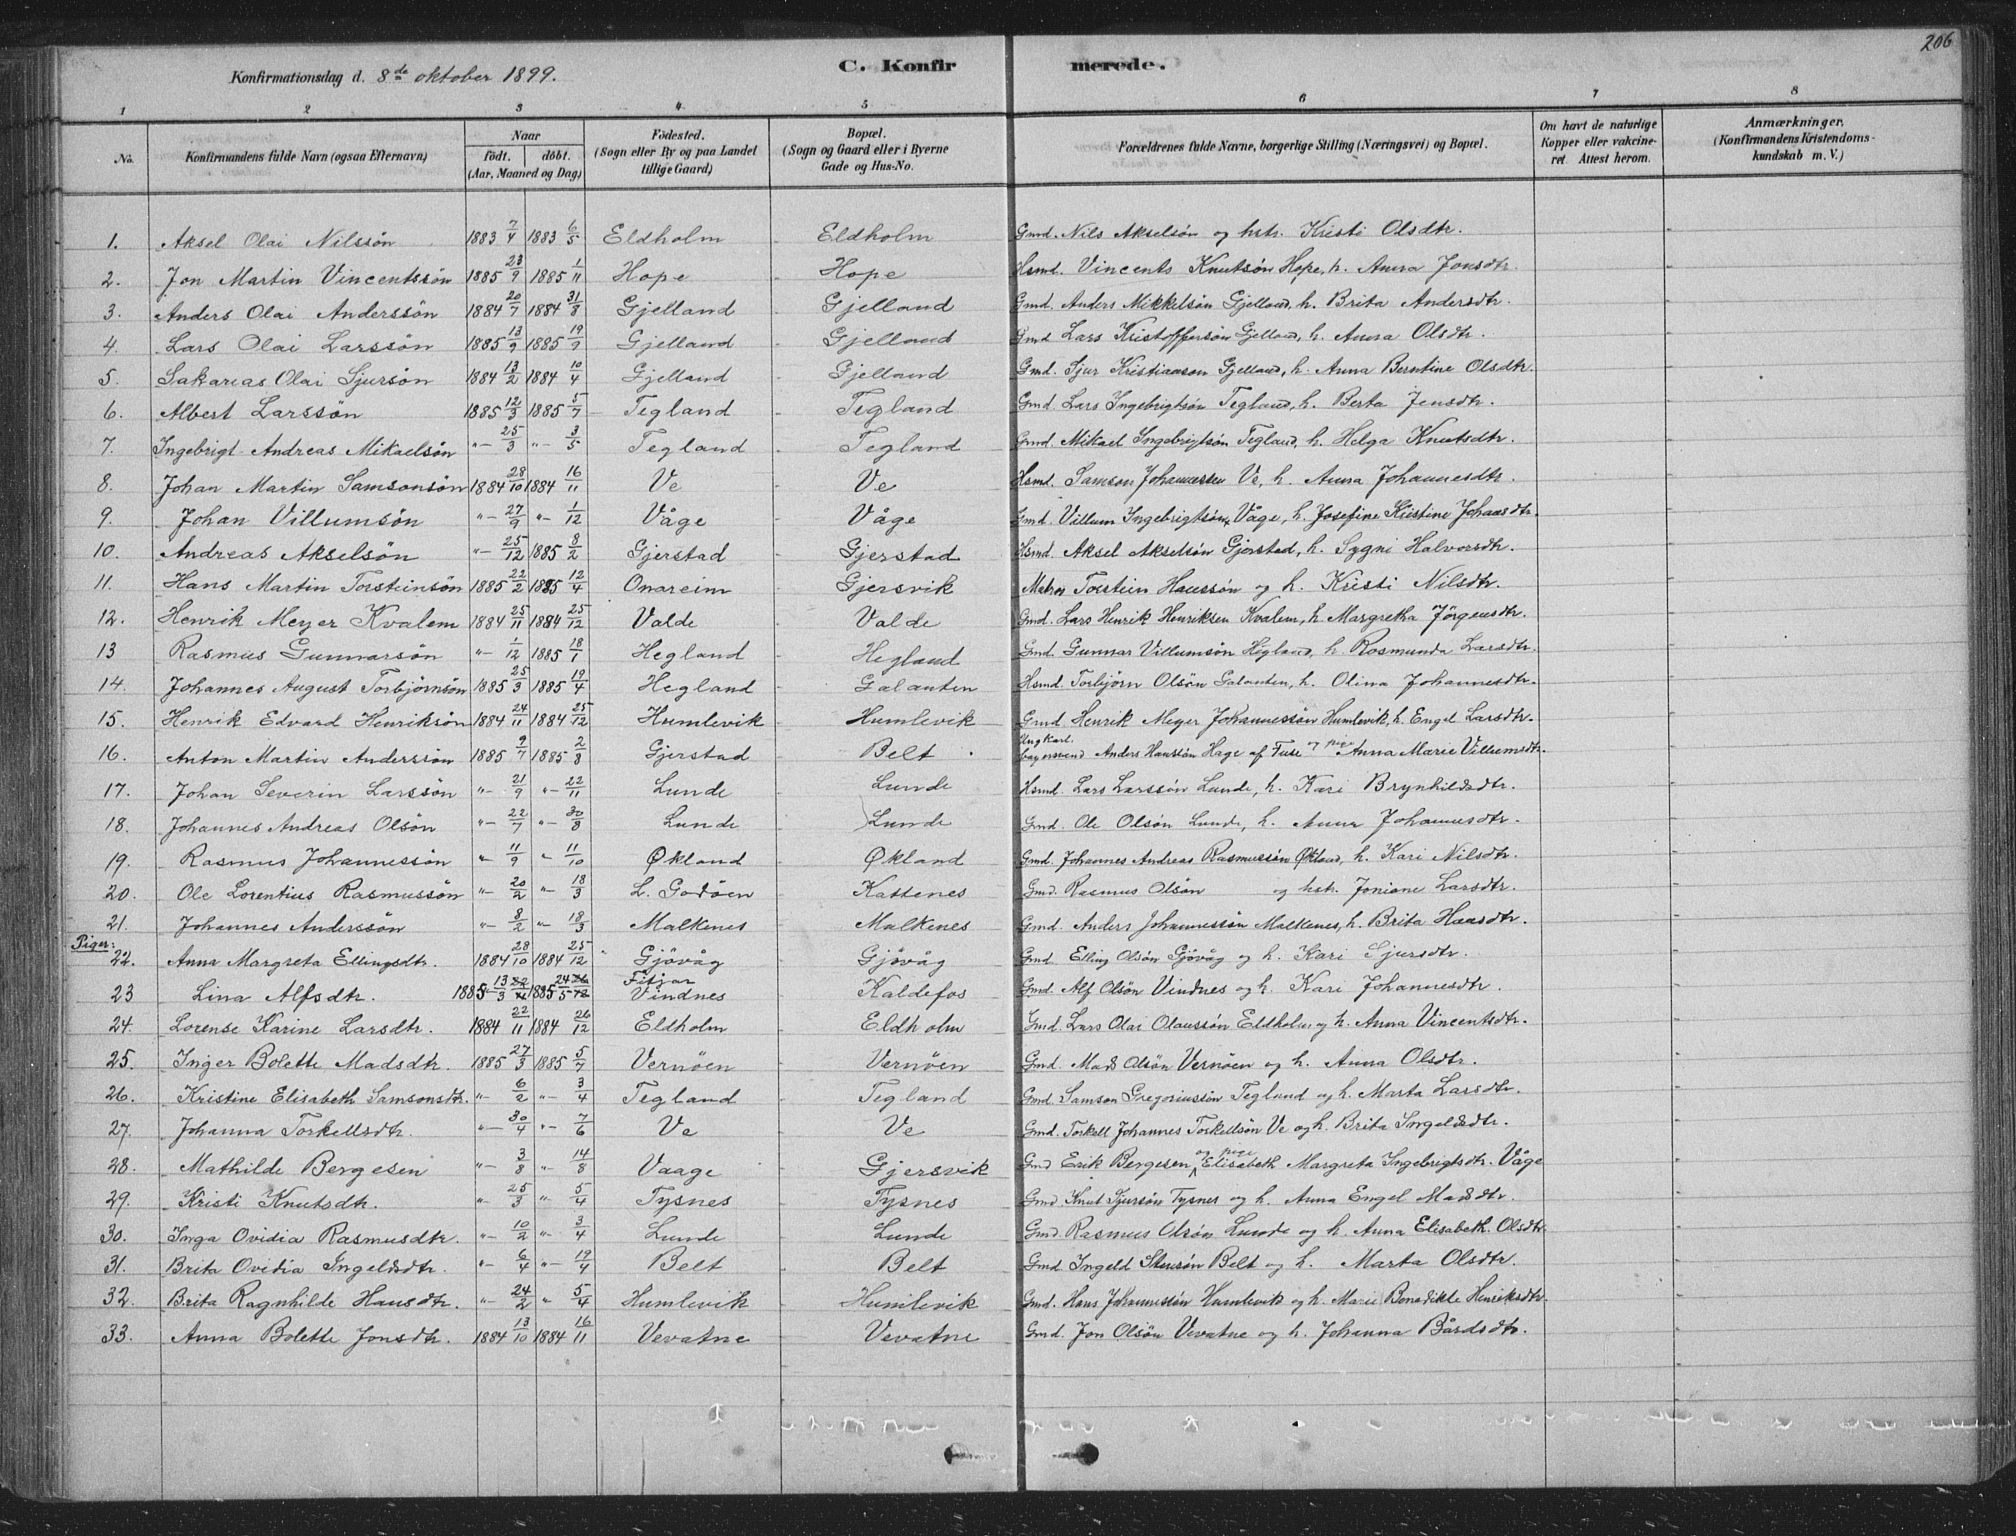 206
Konfirmationsdag d. 8de oktober 1899. C. Konfirmerede.
1 2 3 4 5 6 7 8
No. Konfirmandens fulde Navn (ogsaa Efternavn) Naar født. døbt. (Aar, Maaned og Dag) Fødested. (Sogn eller By og paa Landet tillige Gaard) Bopæl. (Sogn og Gaard eller i Byerne Gade og Hus-No. Forældrenes fulde Navne, borgerlige Stilling (Næringsvei) og Bopæl. Om havt de naturlige Kopper eller vakcineret. Attest herom. Anmærkninger. (Konfirmandens Kristendomskundskab m. V.)
1. Aksel Olai Nilssøn 1883 7/4 1883 6/5 Eldholm Eldholm Gmd. Nils Akselsøn og hstr. Kristi Olsdtr.
2. Jon Martin Vincentssøn 1885 23/9 1885 1/11 Hope Hope Hsmd. Vincents Knutsøn Hope, h. Anna Jonsdtr.
3. Anders Olai Anderssøn 1884 20/7 1884 31/8 Gjelland Gjelland Gmd. Anders Mikkelsøn Gjelland, h. Brita Andersdtr.
4. Lars Olai Larssøn 1885 13/9 1885 19/9 Gjelland Gjelland Gmd Lars Kristoffersøn Gjelland, h. Anna Olsdtr.
5. Sakarias Olai Sjursøn 1884 13/2 1884 10/4 Gjelland Gjelland Gmd. Sjur Kristianson Gjelland, h. Anna Berntine Olsdtr.
6. Albert Larssøn 1885 12/3 1885 5/7 Tegland Tegland Gmd. Lars Ingebrigtsøn Tegland, h. Berta Jensdtr.
7. Ingebrigt Andreas Mikaelsøn "- 25/3 "- 3/5 Tegland Tegland Gmd. Mikael Ingebrigtsøn Tegland, h. Helga Knutsdtr.
8. Johan Martin Samsonsøn 1884 28/10 1884 16/11 Ve Ve Hsmd. Samson Johannessen Ve, h. Anna Johannesdtr.
9. Johan Villumsøn "- 27/9 "- 1/12 Våge Våge Gmd. Villum Ingebrigtsøn Våge, h. Josefine Kristine Johansdtr.
10. Andreas Akselsøn "- 25/12 1885 8/2 Gjerstad Gjerstad Hsmd. Aksel Akselsøn Gjerstad, h. Sygni Halvorsdtr.
11. Hans Martin Torsteinsøn 1885 22/2 1885 12/4 Onareim Gjersvik Matros Torstein Hanssøn og h. Kristi Nilsdtr.
12. Henrik Meyer Kvalem 1884 25/11 1884 25/12 Valde Valde Gmd. Lars Henrik Henriksen Kvalem, h. Margretha Jørgensdtr.
13 Rasmus Gunnarsøn "- 1/12 1885 18/1 Hegland Hegland Gmd. Gunnar Villumsøn Hegland, h. Rosmunda Larsdtr.
14. Johannes August Torbjørnsøn 1885 25/3 1885 19/4 Hegland Galanten Hsmd. Torbjørn Olsøn Galanten, h. Olina Johannesdtr.
15. Henrik Edvard Henriksøn 1884 24/11 1884 25/12 Humlevik Humlevik Gmd. Henrik Meyer Johannessøn Humlevik, h. Engel Larsdtr.
16. Anton Martin Anderssøn 1885 9/7 1885 2/8 Gjerstad Belt Ungkarl Anders Hanssøn Hage af Fuse og pige Anna Marie Villumsdtr.
17. Johan Severin Larssøn "- 21/9 "- 22/11 Lunde Lunde Hsmd. Lars Larssøn Lunde, h. Kari Brynhildsdtr.
18. Johannes Andreas Olsøn "- 22/7 "- 30/8 Lunde Lunde Gmd. Ole Olsøn Lunde, h. Anna Johannesdtr.
19. Rasmus Johannessøn "- 11/9 "- 11/10 Økland Økland Gmd. Johannes Andreas Rasmussøn Økland, h. Kari Nilsdtr.
20. Ole Lorentius Rasmussøn "- 20/2 "- 18/3 L. Godøen Kattenes Gmd. Rasmus Olsøn og hstr. Joniane Larsdtr.
21. Johannes Anderssøn "- 8/2 "- 18/3 Malkenes Malkenes Gmd. Anders Johannessøn Malkenes, h. Brita Hansdtr.
Piger:
22. Anna Margreta Ellingsdtr. 1884 28/10 1884 25/12 Gjøvåg Gjøvåg Gmd. Elling Olsøn Gjøvåg og h. Kari Sjursdtr.
23 Lina Alfsdtr. 1885 13/3 1885 24/5 Fitjar Vindnes Kaldefos Gmd. Alf Olsøn Vindnes og h. Kari Johannesdtr.
24. Lorense Karine Larsdtr. 1884 22/11 1884 26/12 Eldholm Eldholm Gmd. Lars Olai Olaussøn Eldholm og h. Anna Vincentsdtr.
25. Inger Bolette Madsdtr. 1885 27/3 1885 5/7 Vernøen Vernøen Gmd. Mads Olsøn Vernøen og h. Anna Olsdtr.
26. Kristine Elisabeth Samsonsdtr. "- 6/2 "- 3/4 Tegland Tegland Gmd. Samson Gregoriussøn Tegland og h. Marta Larsdtr.
27. Johanna Torkellsdtr. "- 30/4 "- 7/6 Ve Ve Gmd. Torkell Johannes Torkellsøn Ve og h. Brita Ingeldsdtr.
28. Mathilde Bergesen "- 3/8 "- 14/8 Vaage Gjersvik Gmd Erik Bergesen og pige Elisabeth Margreta Ingebrigtsdtr. Våge
29. Kristi Knutsdtr. "- 25/3 "- 5/4 Tysnes Tysnes Gmd Knut Sjursøn Tysnes og h. Anna Engel Madsdtr.
30. Inga Ovidia Rasmusdtr. "- 10/2 "- 3/4 Lunde Lunde Gmd. Rasmus Olsøn Lunde og h. Anna Elisabeth Olsdtr.
31. Brita Ovidia Ingeldsdtr. "- 6/4 "- 19/4 Belt Belt Gmd. Ingeld Stensøn Belt og h. Marta Olsdtr.
32. Brita Ragnhilde Hansdtr. "- 24/2 "- 5/4 Humlevik Humlevik Gmd. Hans Johannessøn Humlevik og h. Marie Benedikte Henriksdtr.
33. Anna Bolette Jonsdtr. 1884 13/10 1884 16/11 Vevatne Vevatne Gmd. Jon Olsøn Vevatne og h. Johanna Bårdsdtr.